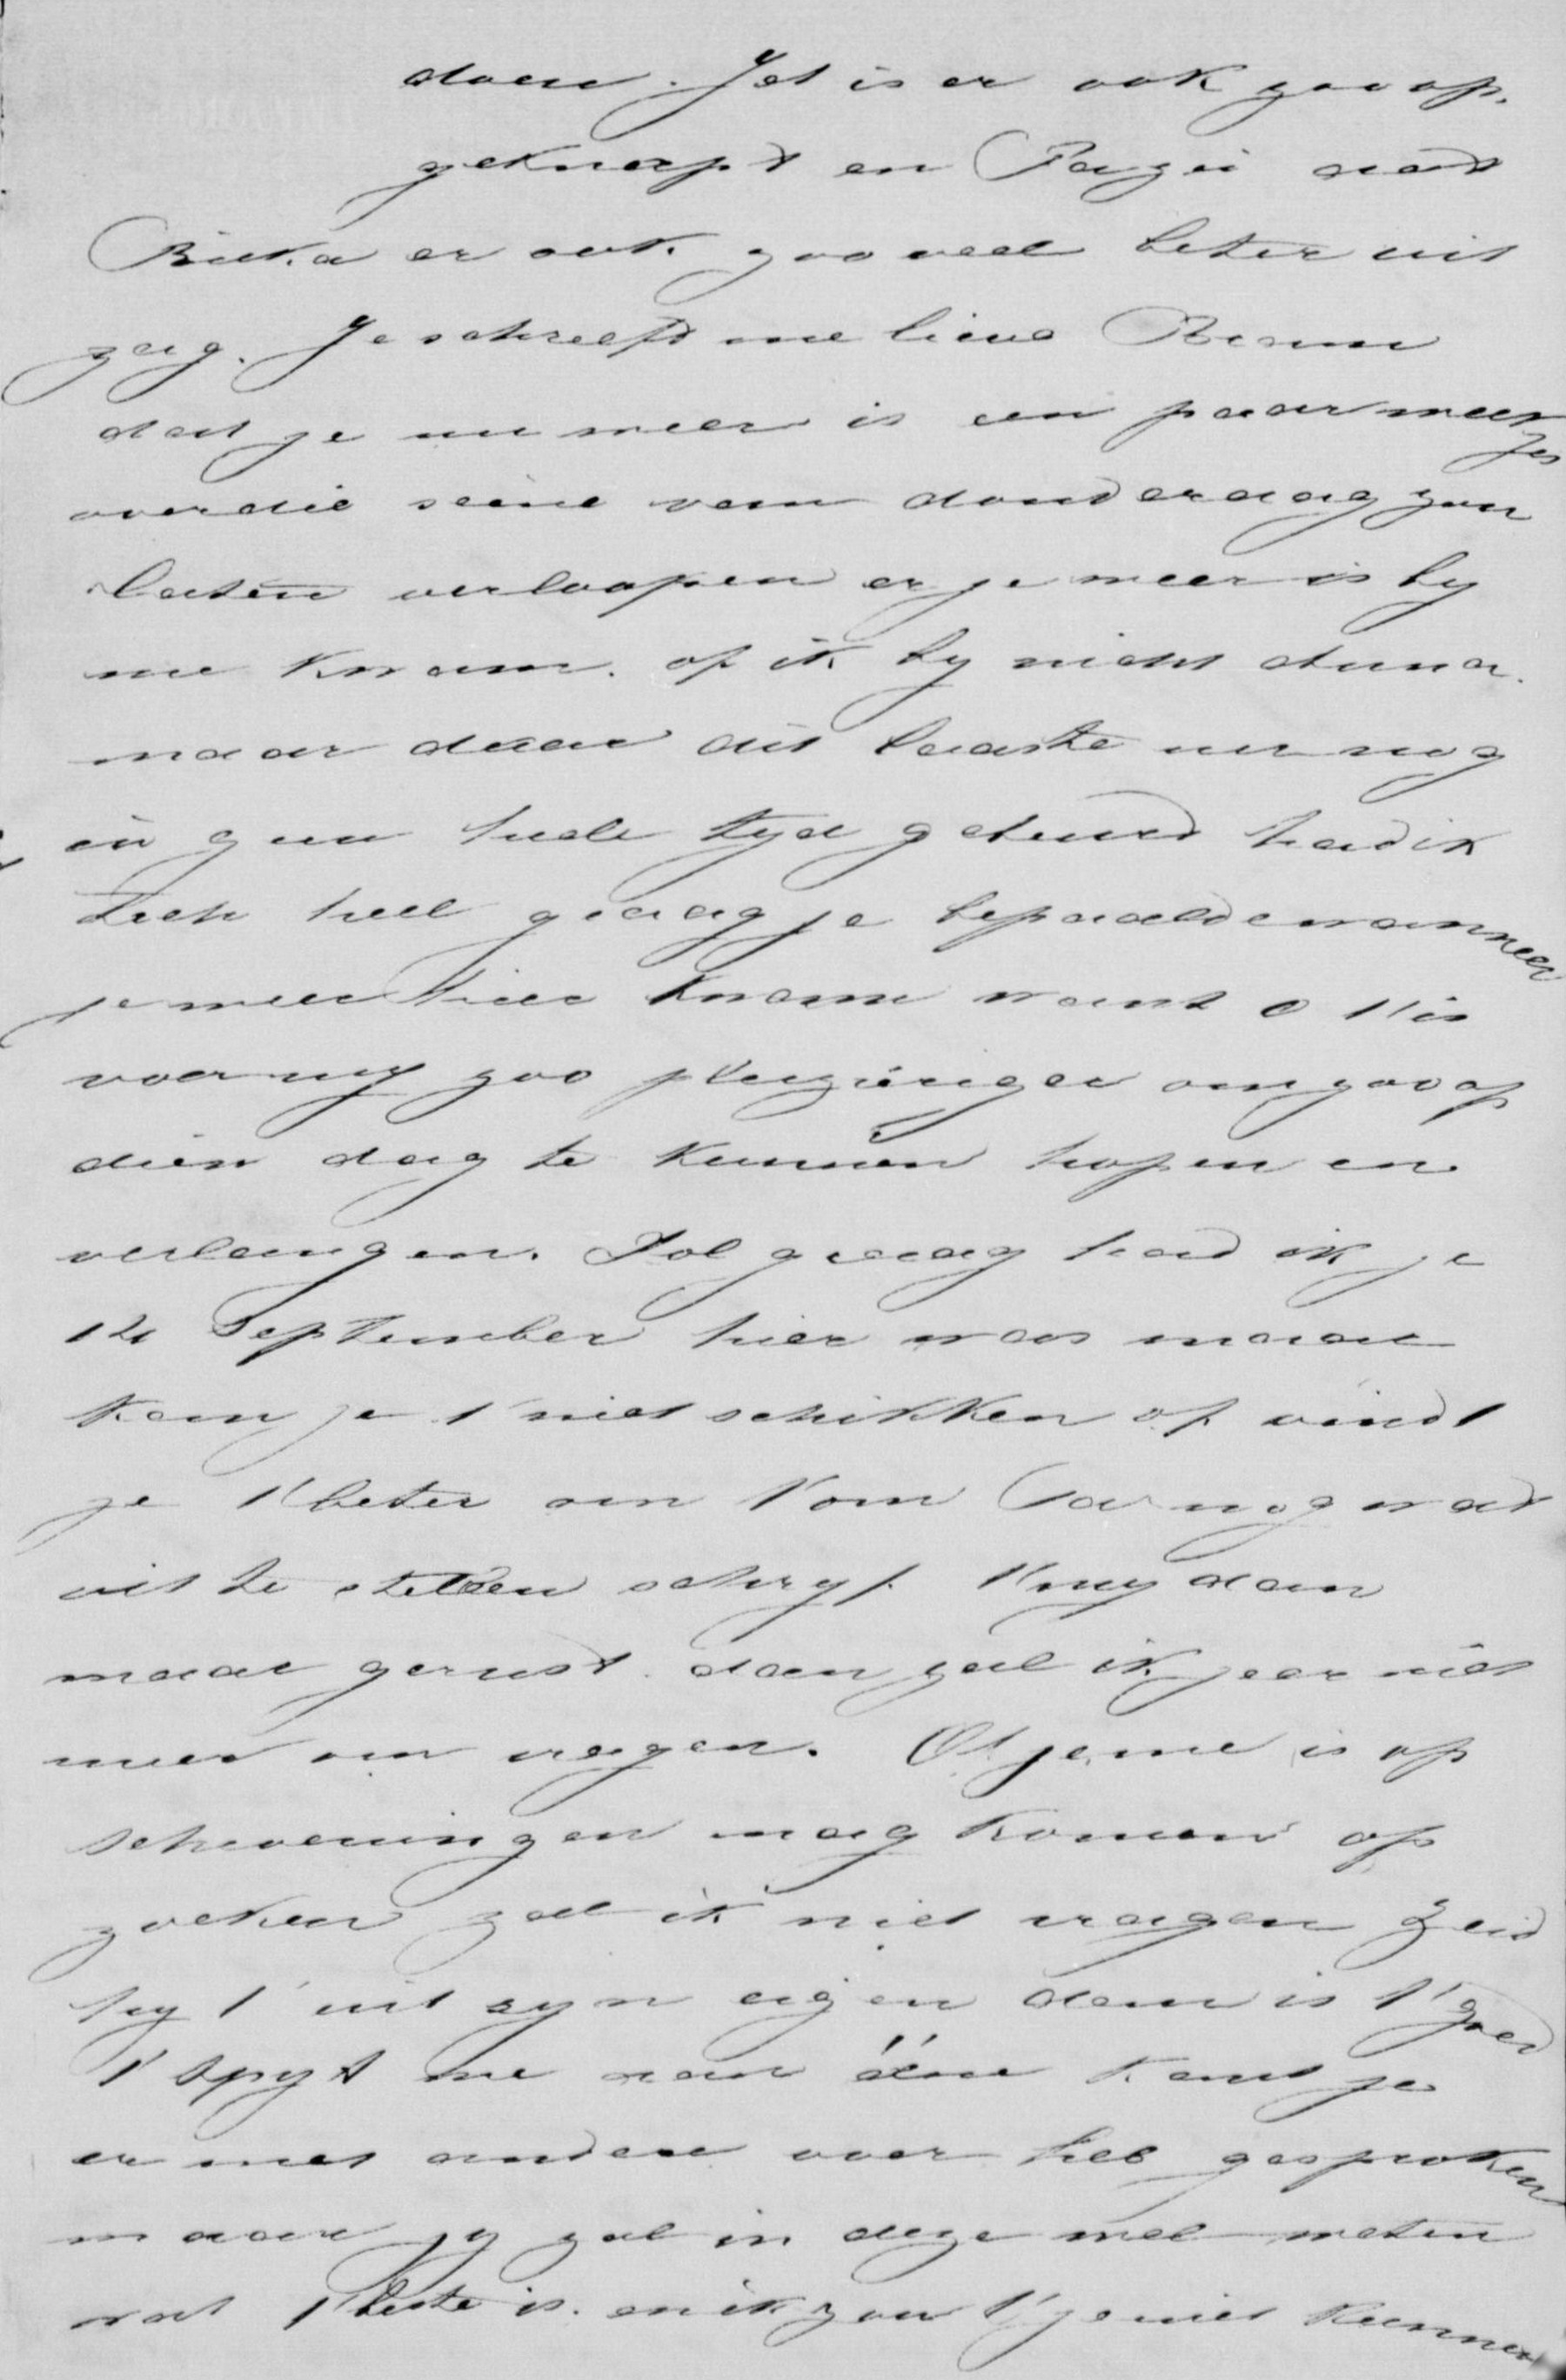 doen. Jet is er ook zoo op.
geknapt en zei dat
er ook zoo veel beter uit
zag. Je schreeft me lieve Bram
dat je nu weer is een paar weekjes
over die scène van donderdag zou
laten verloopen er je weer is by
me kwam. of ik by nicht
maar daar dit laaste nu nog
in geen heele tyd gebeurd had ik
toch heel graag je bepaalde wanneer
je weer hier kwam want o 't is
voor my zoo plezieriger om zoo op
dien dag te kunnen hopen en
verlangen. Dol graag had ik je
12 September hier was maar
kan je 't niet schikken of vindt
je 't beter om 't om Pa nog wat
uit te stellen schryf 't my dan
maar gerust. dan zal ik je er niet
meer om vragen. Of je me is op
scheveningen mag komen op
zoeken zal ik niet vragen Zeid
hy 't uit zyn eigen dan is 't goed
't spyt me aan ééne kant je
er met andere over heb gesproken
maar jy zal in deze wel weten
wat 't beste is. en ik zou 't je niet kunnen